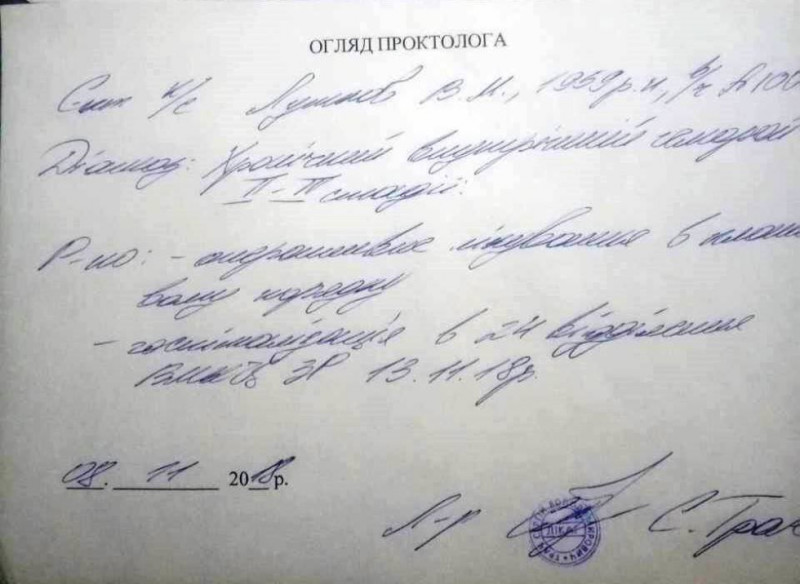 ОГЛЯД ПРОКТОЛОГА
В.М., 1959 р.н., в/ч А 100
Діагноз: Хронічний внутрішній геморой
II-III стадії.
Р-но: - оперативне лікування в плано
вому порядку
- госпіталізація в 24 відділення
ВМКЦ ЗР 13.11.18р.
08. 11 2018р.
Л-р С. Трач